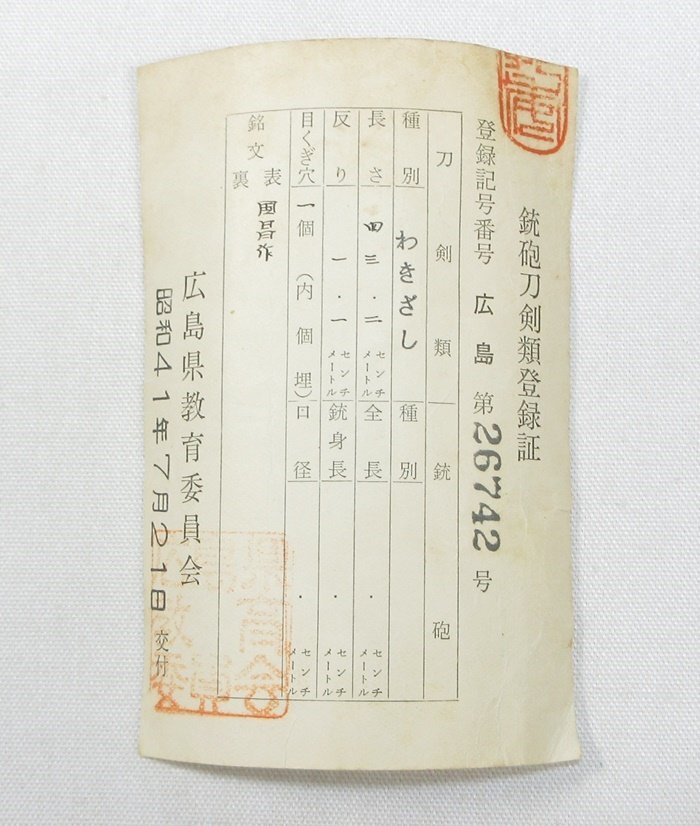 銃砲刀剣類登録証
登録記号番号 広島 第26742号
刀剣類
銃砲
種別 わきざし
種別
長さ 四三.二 センチメートル
全長 . センチメートル
反り 一.一 センチメートル
銃身長 . センチメートル
目くぎ穴 一個(内 個埋)
口径 . センチメートル
銘文 表 国昌作
裏
広島県教育委員会
昭和41年7月21日 交付